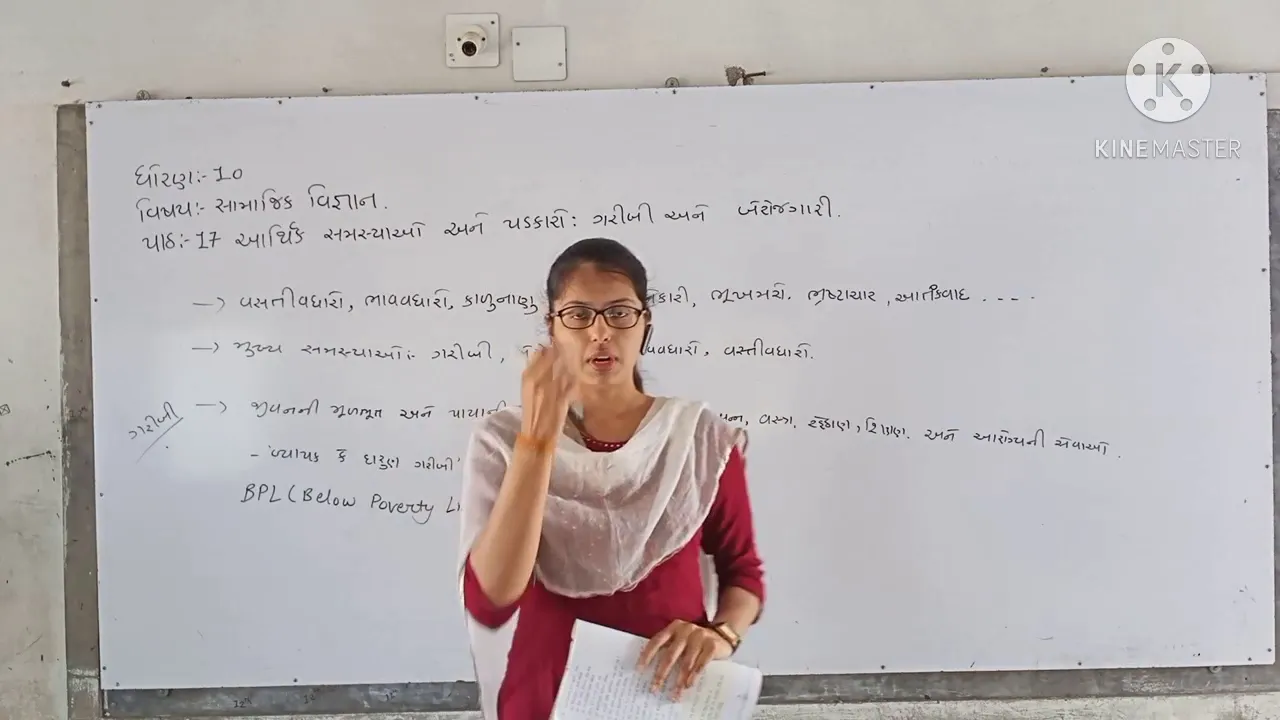 KINEMASTER
ધોરણ:- 10
વિષય:- સામાજિક વિજ્ઞાન.
પાઠ:- 17 આર્થિક સમસ્યાઓ અને પડકારો: ગરીબી અને બેરોજગારી.
→ વસ્તીવધારો, ભાવવધારો, કાળુનાણુ કારી, ભૂખમરો. ભ્રષ્ટાચાર, આતંકવાદ ....
→ મુખ્ય સમસ્યાઓ:- ગરીબી, વધારો, વસ્તીવધારો.
ગરીબી
→ જીવનની મૂળભૂત અને પાયાની વસ્ત્ર, રહેઠાણ, શિક્ષણ. અને આરોગ્યની સેવાઓ.
- 'વ્યાપક કે દારુણ ગરીબી'
BPL (Below Poverty Li